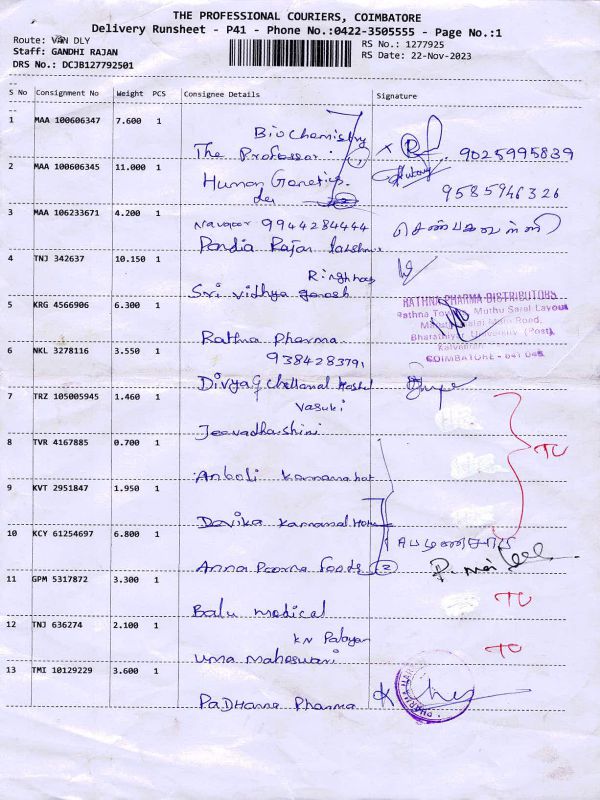 THE PROFESSIONAL COURIERS, COIMBATORE
Delivery Runsheet - P41 - Phone No.:0422-3505555 - Page No.:1
Route: VAN DLY
RS No.: 1277925
Staff: GANDHI RAJAN
RS Date: 22-Nov-2023
DRS No.: DCJB127792501
S No Consignment No Weight PCS Consignee Details Signature
1 MAA 100606347 7.600 1
Biochemistry
The Professor 9025995839
2 MAA 100606345 11.000 1
Human Genetics
9585946326
3 MAA 106233671 4.200 1
9944284444
Pandia Rajan
4 TNJ 342637 10.150 1
Sri vidhya ganesh
RATHNA PHARMA DISTRIBUTORS
5 KRG 4566906 6.300 1
Rathna Pharma
COIMBATORE - 641 046
6 NKL 3278116 3.550 1
9384283791
Divya Chellamal Hostel
7 TRZ 105005945 1.460 1
Vasuki
Jeevadharshini
TU
8 TVR 4167885 0.700 1
9 KVT 2951847 1.950 1
Devika
10 KCY 61254697 6.800 1
Anna Poorna foods 2
11 GPM 5317872 3.300 1
TU
Balu medical
12 TNJ 636274 2.100 1
TU
Uma maheswari
13 TMI 10129229 3.600 1
Padhana Pharma